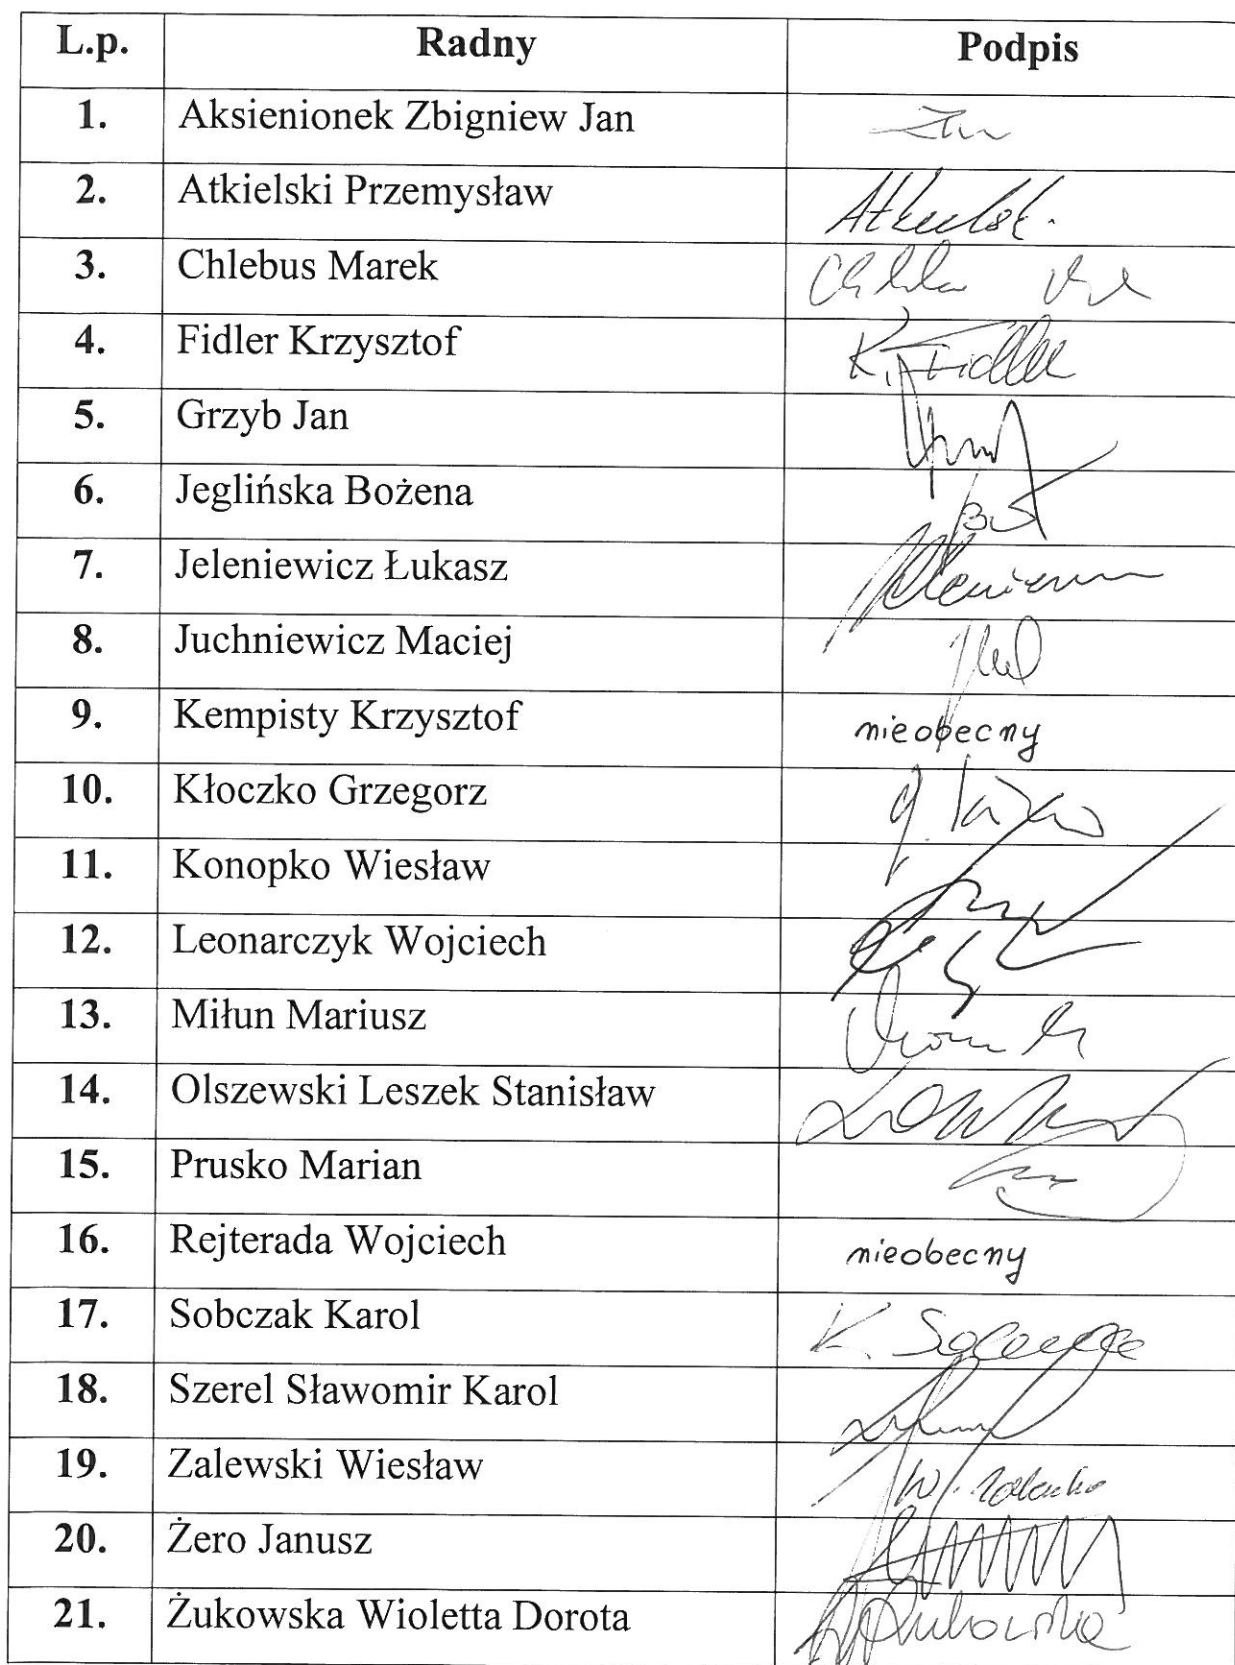 L.p. Radny Podpis
1. Aksienionek Zbigniew Jan
2. Atkielski Przemysław
3. Chlebus Marek
4. Fidler Krzysztof K. Fidler
5. Grzyb Jan
6. Jeglińska Bożena
7. Jeleniewicz Łukasz
8. Juchniewicz Maciej
9. Kempisty Krzysztof nieobecny
10. Kłoczko Grzegorz
11. Konopko Wiesław
12. Leonarczyk Wojciech
13. Miłun Mariusz
14. Olszewski Leszek Stanisław
15. Prusko Marian
16. Rejterada Wojciech nieobecny
17. Sobczak Karol
18. Szerel Sławomir Karol
19. Zalewski Wiesław
20. Żero Janusz
21. Żukowska Wioletta Dorota